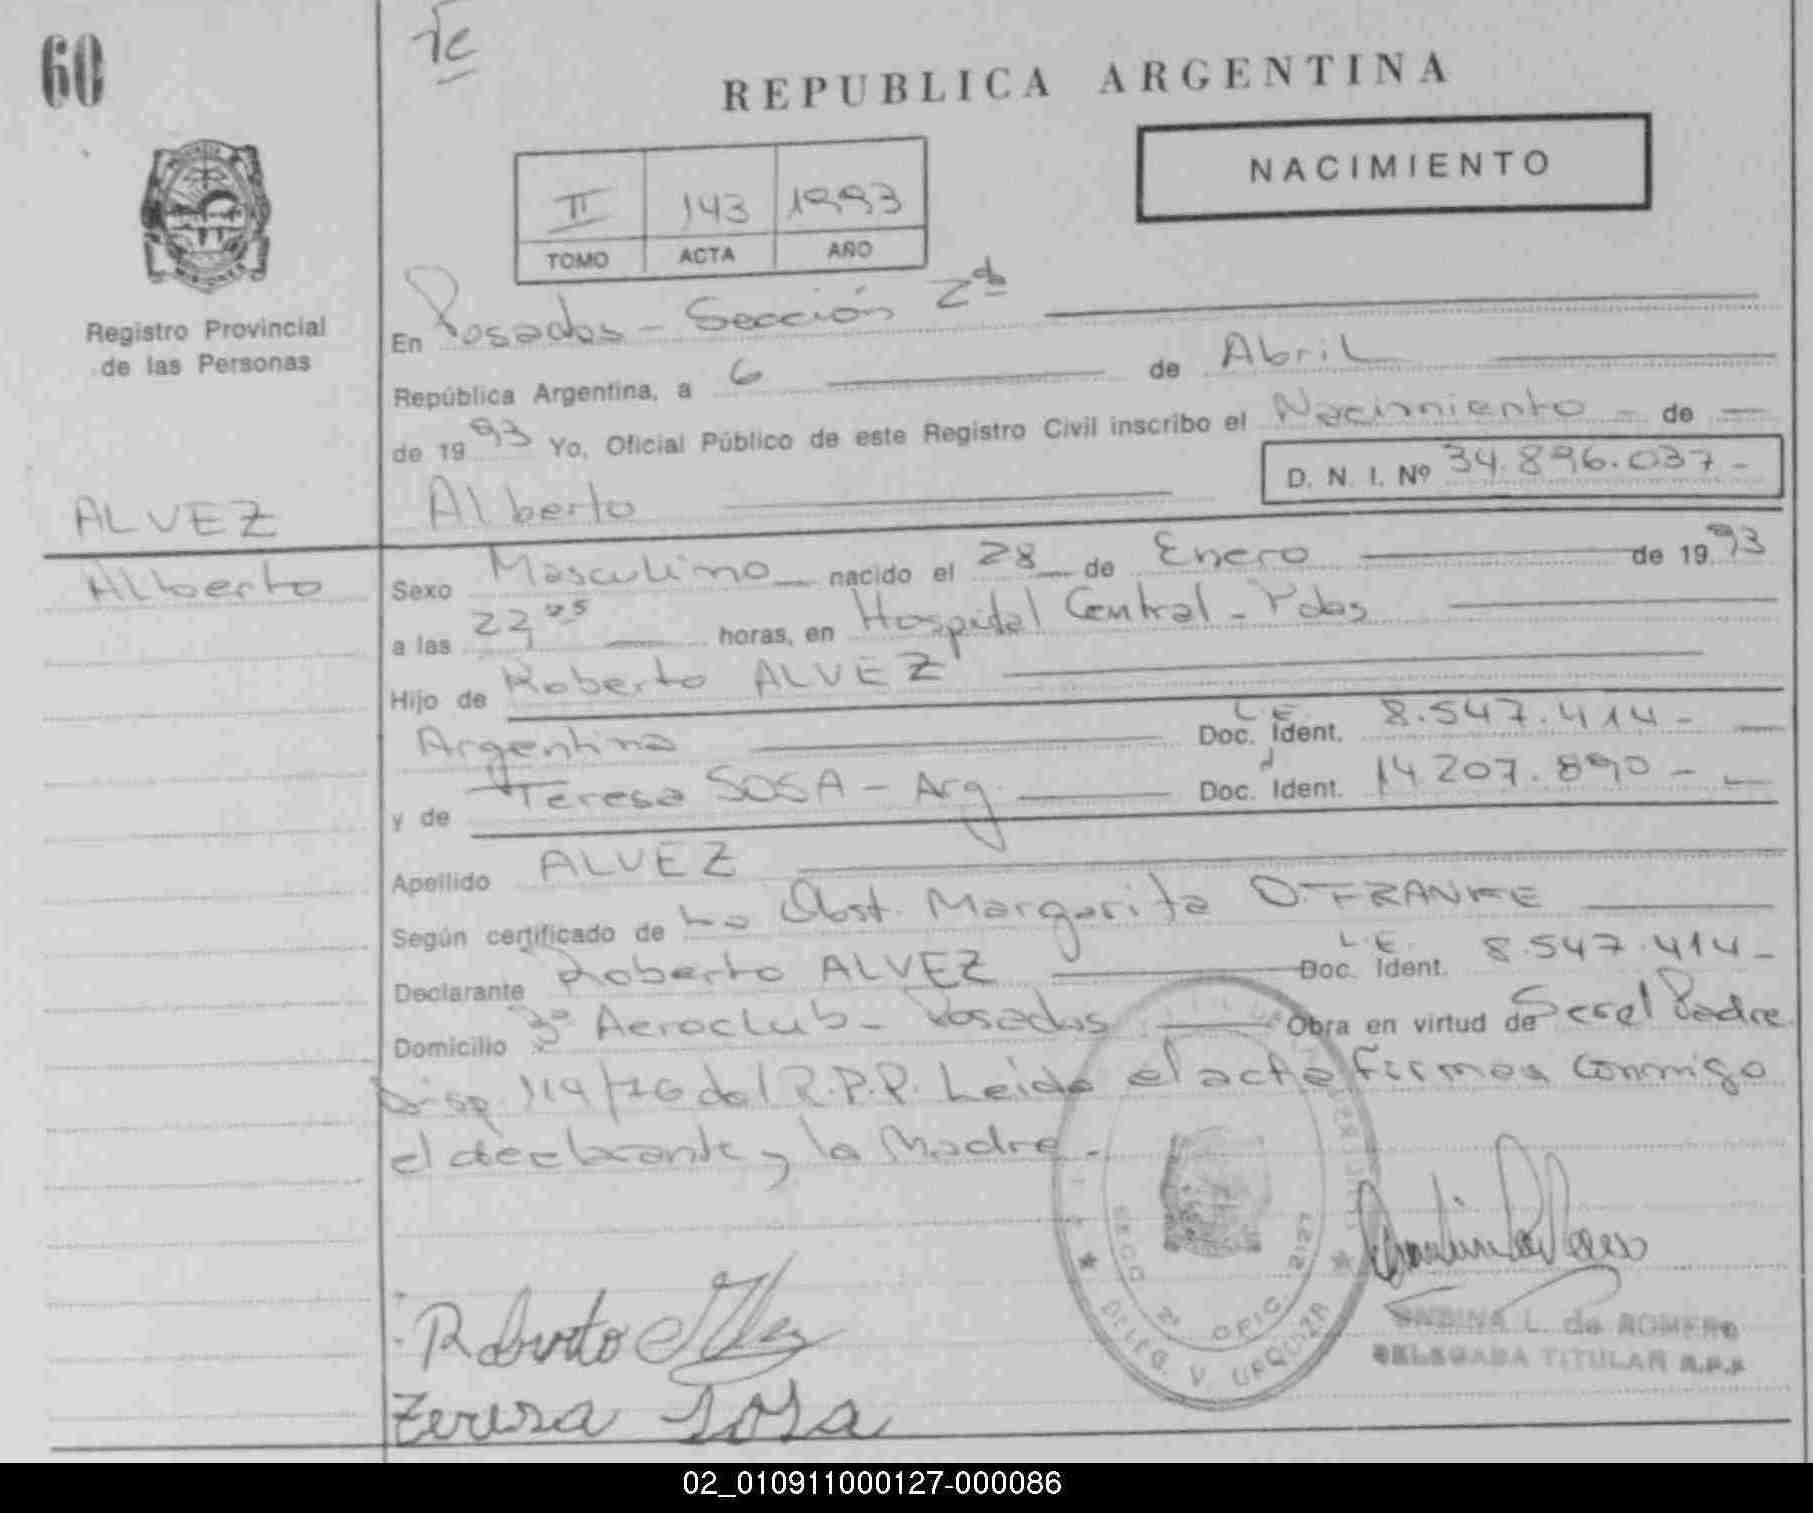 60
REPUBLICA ARGENTINA
NACIMIENTO
II 143 1993
TOMO ACTA AÑO
Registro Provincial
de las Personas
En Posadas - Sección 2da
República Argentina, a 6 de Abril
de 1993 Yo, Oficial Público de este Registro Civil inscribo el Nacimiento - de
D. N. I. Nº 34.896.037 -
ALVEZ
Alberto
Alberto
Sexo Masculino nacido el 28 de Enero de 1993
a las 22,25 horas, en Hospital Central - Pdas
Hijo de Roberto ALVEZ
Argentina L.E. Doc. Ident. 8.547.414 -
y de Teresa SOSA - Arg. Doc. Ident. 14.207.890 -
Apellido ALVEZ
Según certificado de La Obst. Margarita O. FRANKE
Declarante Roberto ALVEZ L.E. Doc. Ident. 8.547.414 -
Domicilio Aeroclub - Posadas Obra en virtud de Ser el Padre
Disp 119/76 del R.P.P. Leida el acta Firman Conmigo
el declarante y la Madre -
Roberto Alvez
Teresa Sosa
SECC 2ª OFIC. 2127
DELEG. V. URQUIZA
ONDINA L. de ROMERO
DELEGADA TITULAR R.P.P.
02_010911000127-000086